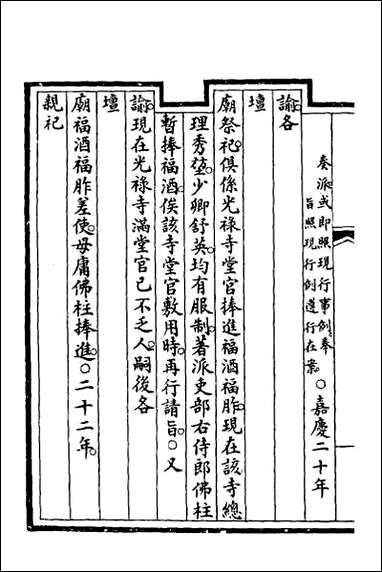 奏派或即照現行事例奉
旨照現行例遵行在案○嘉慶二十年
諭各
壇
廟祭祀俱係光祿寺堂官捧進福酒福胙現在該寺總
理秀堃少卿舒英均有服制著派吏部右侍郎佛柱
暫捧福酒俟該寺堂官敷用時再行請旨○又
諭現在光祿寺滿堂官已不乏人嗣後各
壇
廟福酒福胙差使毋庸佛柱捧進○二十二年
親祀